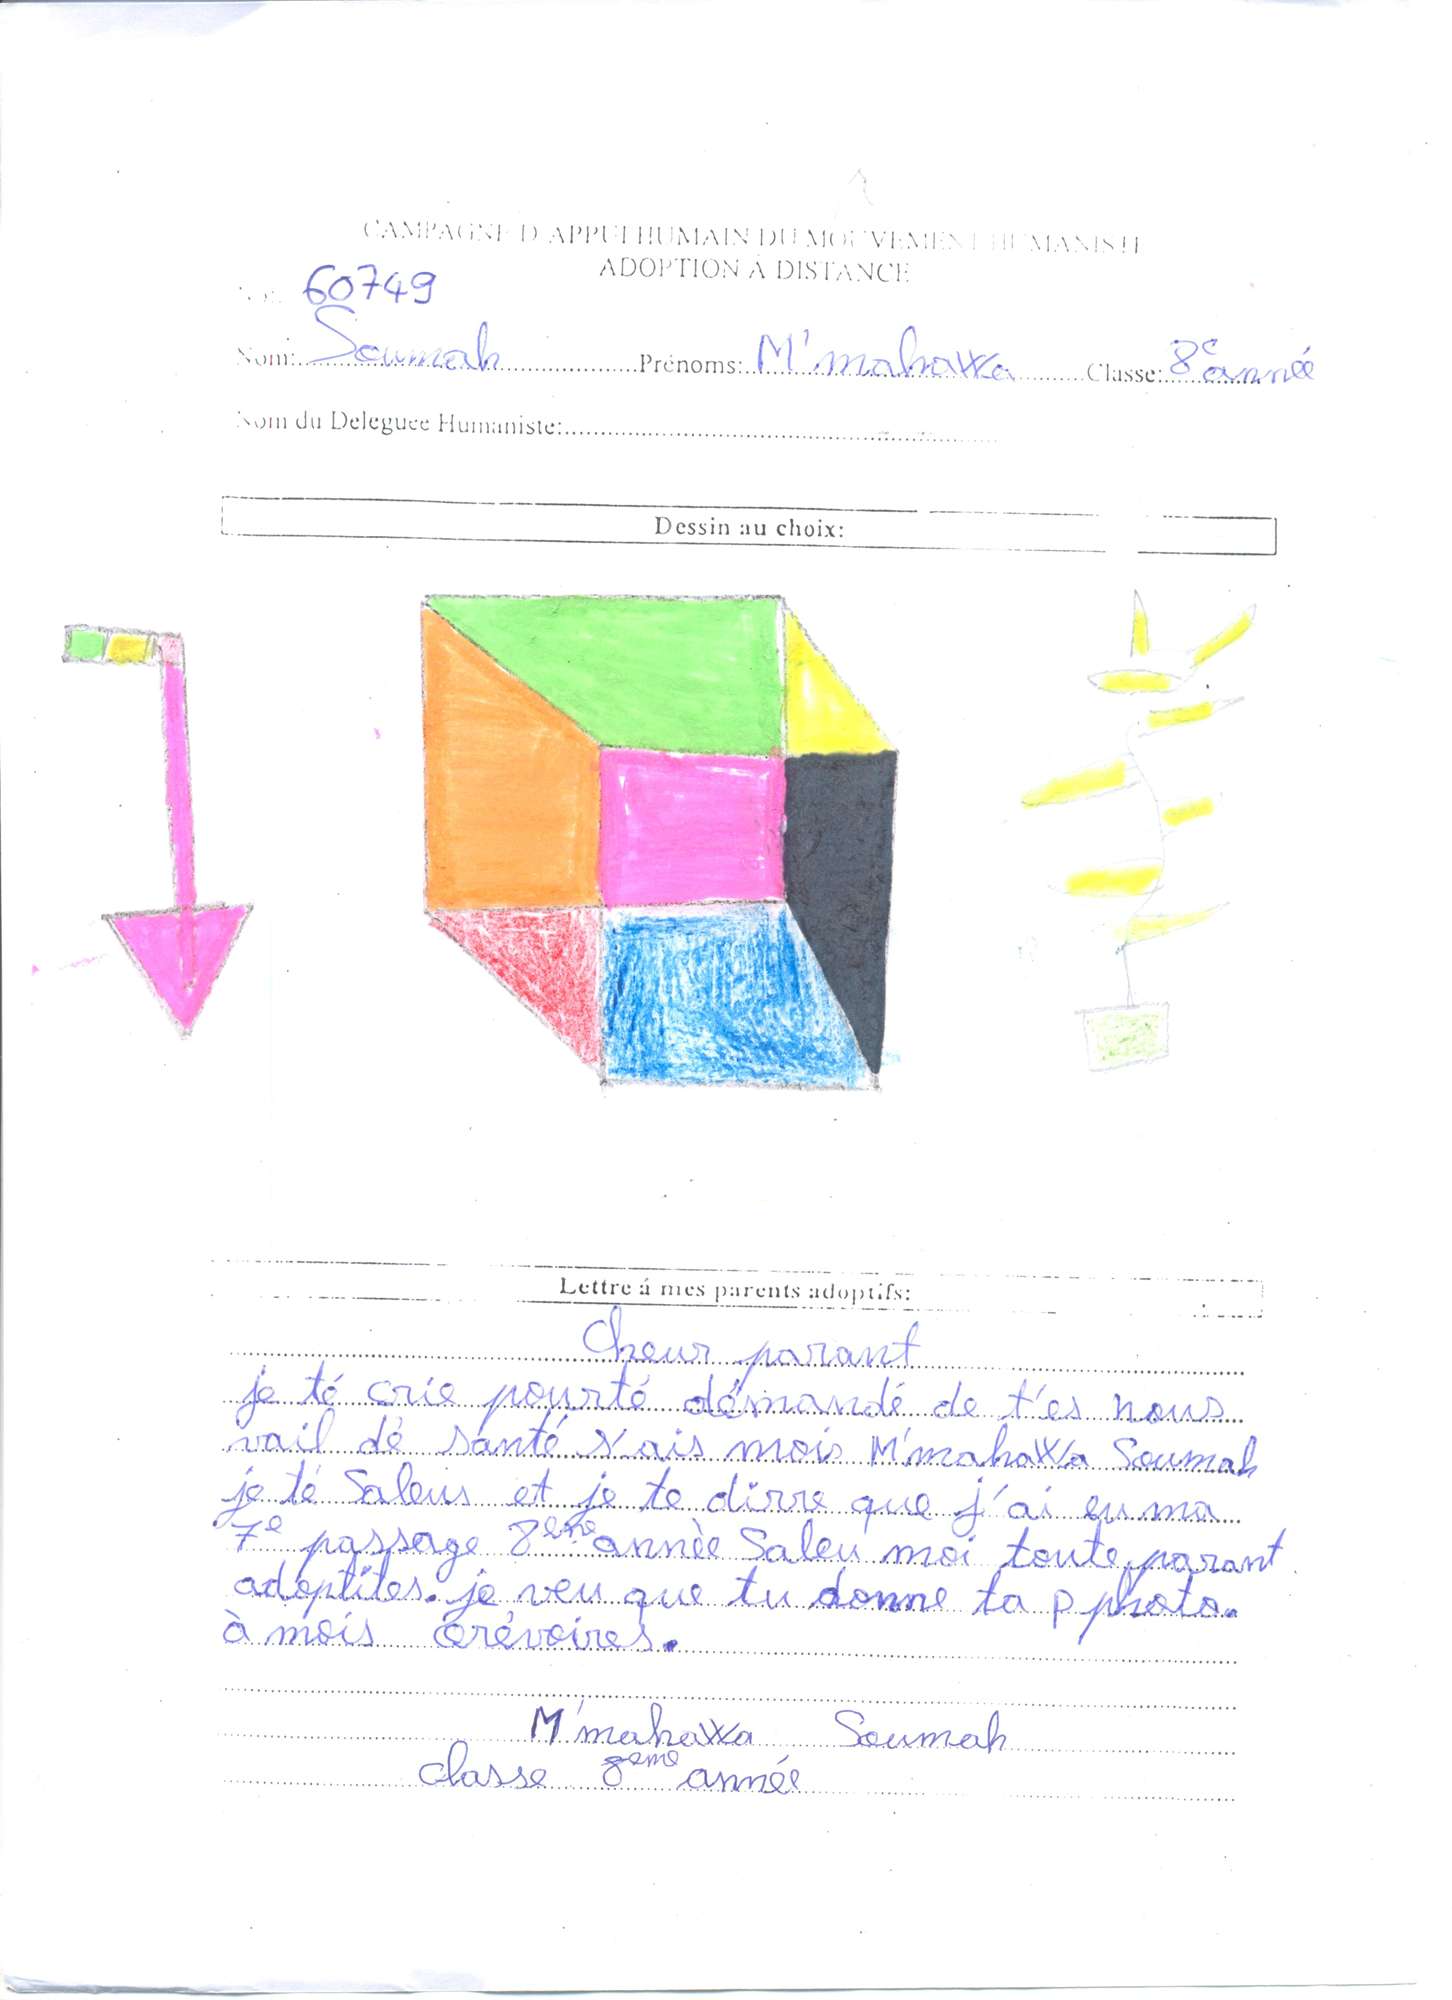 CAMPAGNE D'APPUI HUMAIN DU MOUVEMENT HUMANISTE
ADOPTION À DISTANCE
60749
Nom: Soumah Prénoms: M'mahawa Classe: 8e année
Nom du Deleguee Humaniste:
Dessin au choix:
Lettre á mes parents adoptifs:
Cheur parant
je té crie pourté démandé de t'es nous
vail dé santé ais mois M'mahawa Soumah
je té Saleus et je te dirre que j'ai eu ma
7e passage 8eme année Saleu moi toute parant
adoptites. je veu que tu donne ta p photo.
à mois orévoires.
M'mahawa Soumah
classe 8eme année